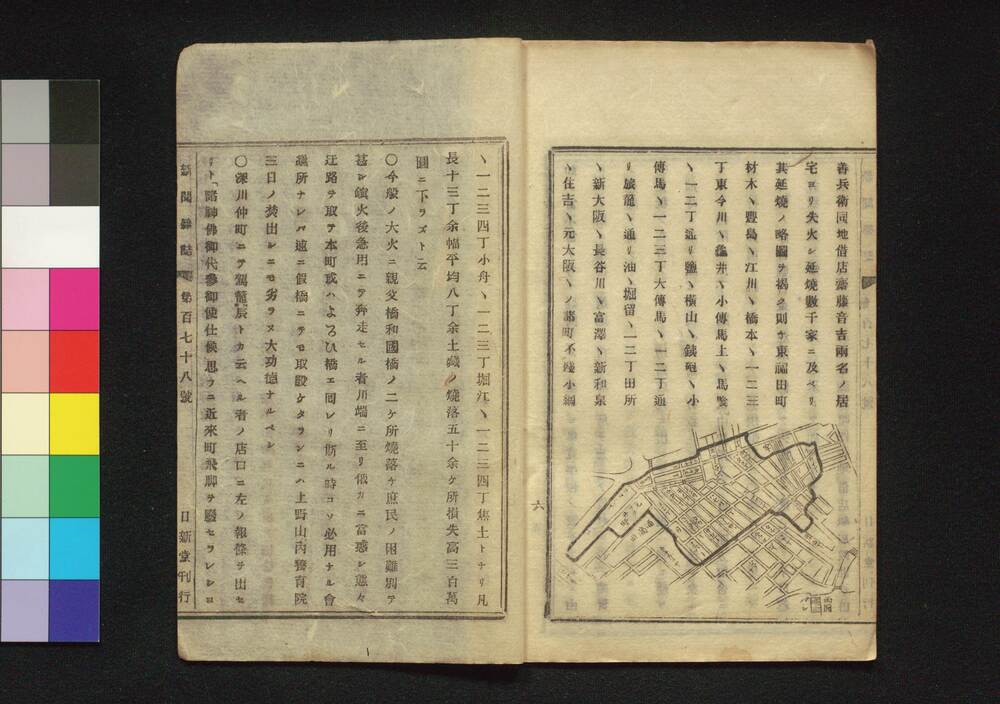 善兵衛同地借店齋藤音吉兩名ノ居
宅ヨリ失火シ延燒數千家ニ及ベリ
其延燒ノ略圖ヲ揭ク則チ東福田町
材木ヽ豊島ヽ江川ヽ橋本ヽ一二三
丁東今川ヽ龜井ヽ小傳馬上ヽ馬喰
ヽ一二丁通リ鹽ヽ橫山ヽ鐵砲ヽ小
傳馬ヽ一二三丁大傳馬ヽ一二丁通
リ旅籠ヽ通リ油ヽ堀留ヽ一二丁田所
ヽ新大阪ヽ長谷川ヽ富澤ヽ新和泉
ヽ住吉ヽ元大阪ヽノ諸町不殘小網
六
ヽ一二三四丁小舟ヽ一二三丁堀江ヽ一二三四丁焦土トナリ凡
長十三丁余幅平均八丁余土藏ノ燒落五十余ケ所損失高三百萬
圓ニ下ラズト云
〇今般ノ大火ニ親父橋和國橋ノ二ケ所燒落チ庶民ノ困難別テ
甚シ鎭火後急用ニテ奔走セル者川端ニ至リ俄カニ當惑シ態々
迂路ヲ取テ本町或ハよろひ橋エ回レリ斯ル時コソ必用ナル會
議所ナレバ速ニ假橋ニテモ取設ケタランニハ上野山内養育院
三日ノ焚出シニモ劣ラヌ大功德ナルベシ
〇深川仲町ニテ駕籠辰トカ云ヘル者ノ店口ニ左ノ報條ヲ出セ
リト「諸神佛御代參御使仕候思フニ近來町飛脚ヲ廢セラレシヨ
新聞雜誌
第百七十八號
日新堂刊行